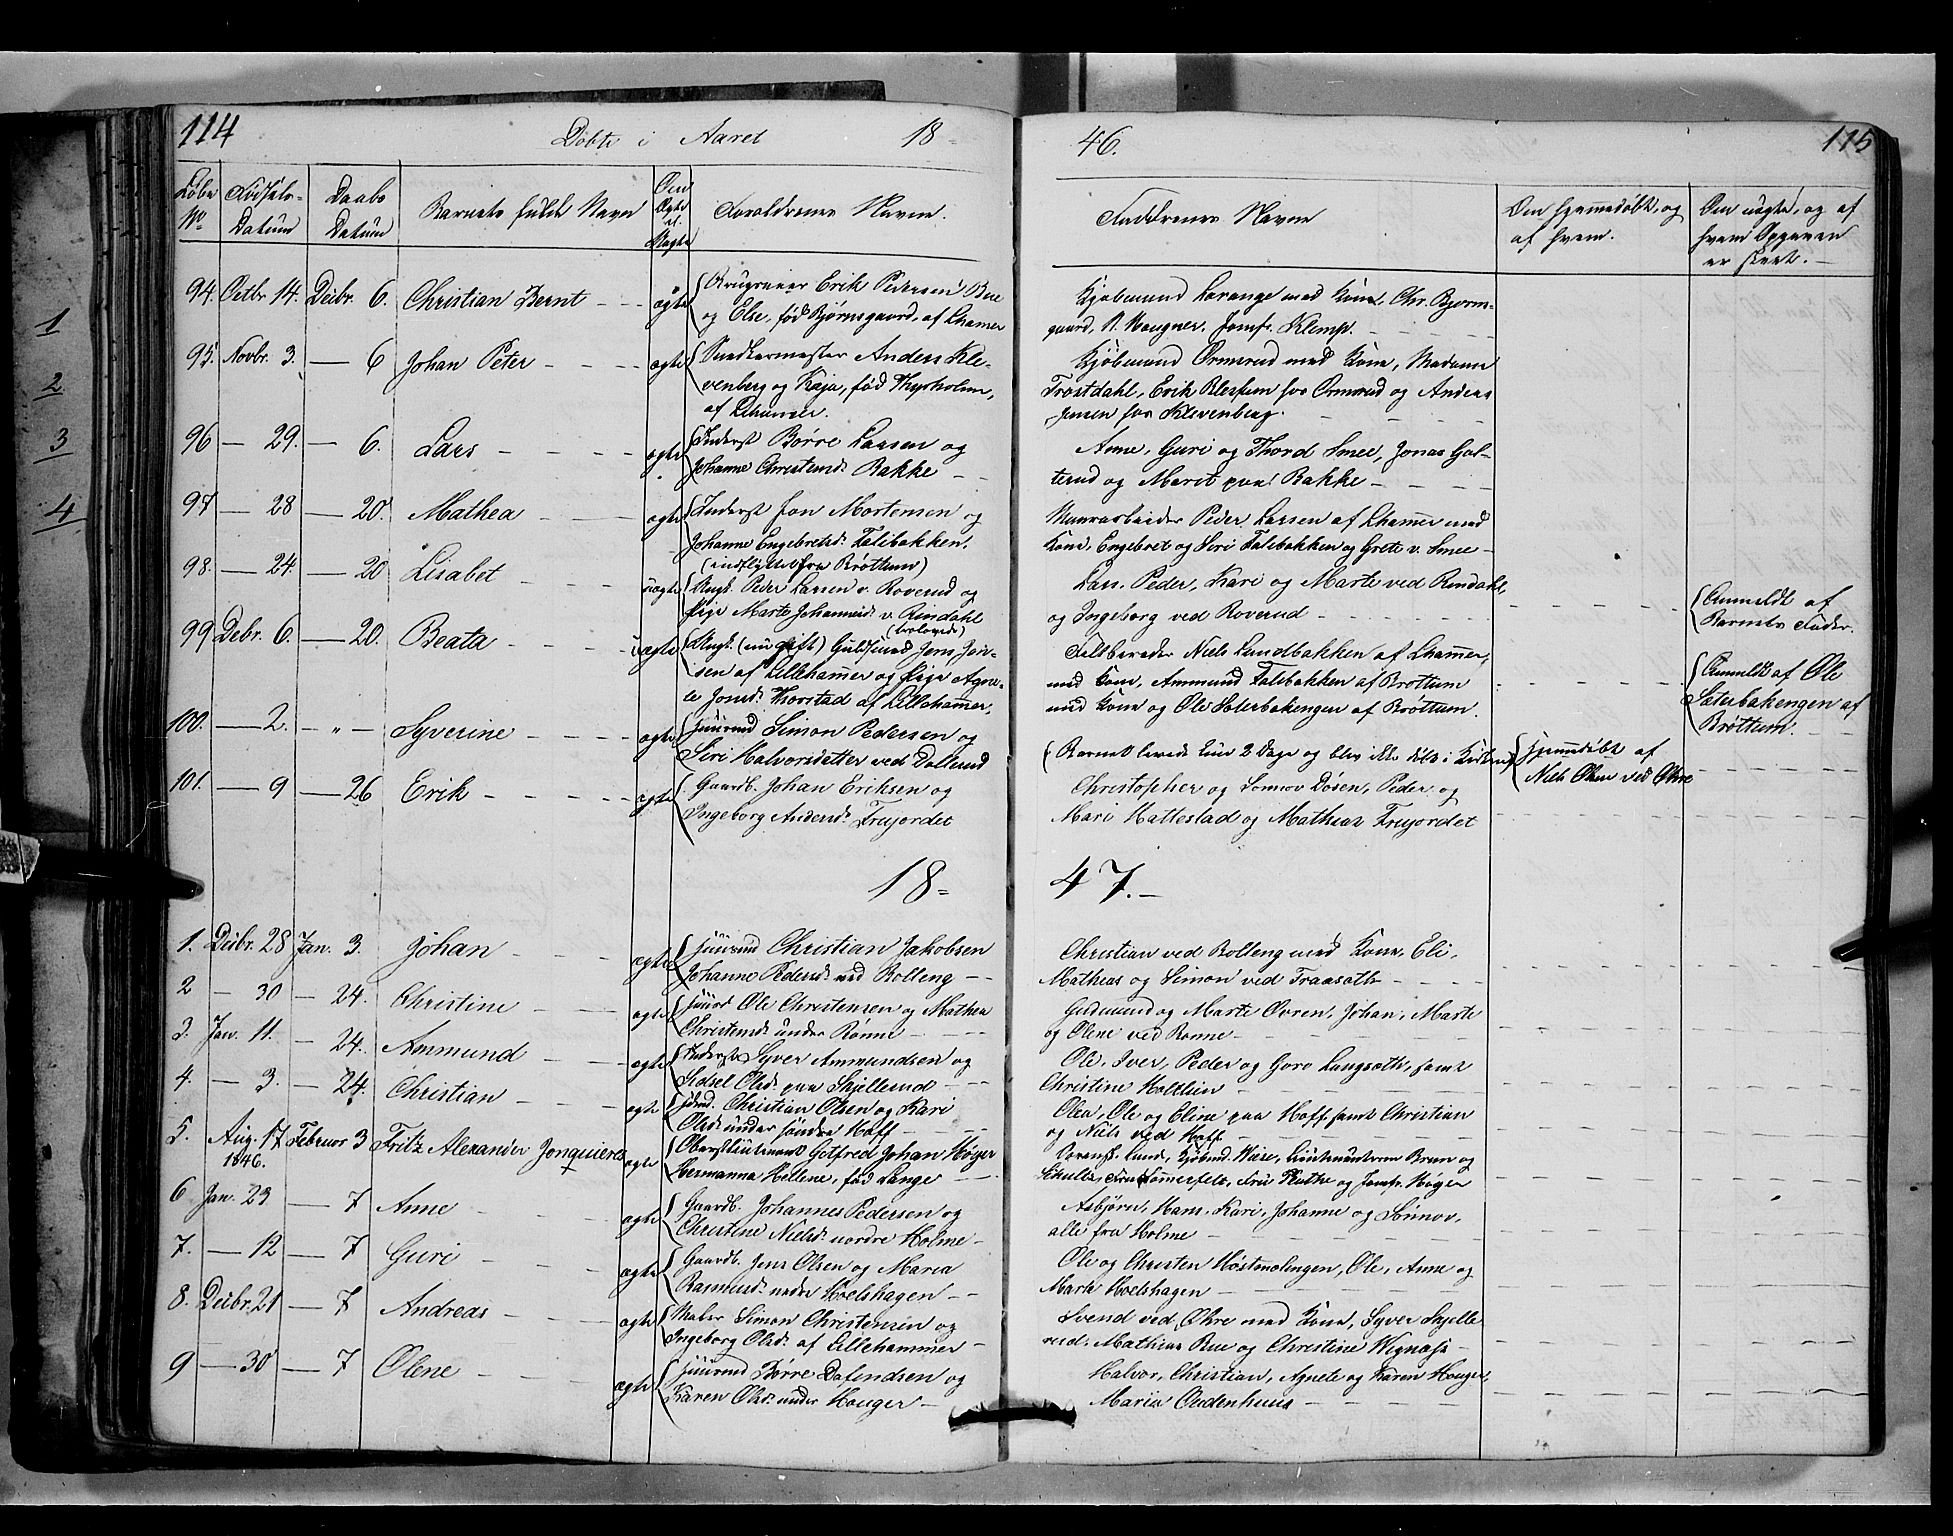 114
Døbte i Aaret 18-
46.
115
Løbe No
Fødsels-Datum
Daabs Datum
Barnets fulde Navn
Om Ægte el. Uægte
Forældrenes Navne.
Faddrenes Navne
Om hjemmedøbt, og af hvem.
Om uægte, og af hvem Opgaven er skeet. -
94. Octbr. 14. Decbr. 6. Christian Bernt - - ægte Erik Pedersen Bue
og Else, fød Bjørnsgaard, af Lhamer
Kjøbmand Lorange med Kone, Chr. Bjørns-
gaard, N. Haugner, Jomfr. Klemp.
95. Novbr. 3. - 6 Johan Peter - - - ægte Snedkermester Anders Kle-
venberg og Kaja, fød Thyrholm,
af Lhamer.
Kjøbmand Ormsrud med Kone, Madame
Trostdahl, Erik Blessum hos Ormsrud og Anders
Jensen hos Klevenberg.
96 - 29. - 6. Lars - - - ægte Inderst Børre Larsen og
Johanne Christensd. Bakke - -
Anne, Guri og Thord Smee, Jonas Gol-
terud og Marit paa Bakke -
97 - 28 - 20. Mathea - - - ægte Inderst Jon Mortensen og
Johanne Engebretsd. Talsbakken.
(indflyttet fra Brøttum)
Muurarbeider Peder Larsen af Lhamer med
Kone, Engebret og Siri Talsbakken og Grete v. Smee -
98. - 24. - 20 Lisabet - - - uægte Ungk. Peder Larsen v. Roverud og
Pige Marte Johannesd. v. Rindahl
(trolovede)
Lars, Peder, Kari og Marte ved Rindahl,
og Ingeborg ved Roverud - - -
Anmeldt af
Barnets Fader.
99 Debr. 6. - 20. Beata - - - uægte Ungk. (nu gift) Guldsmed Jens Jen-
sen af Lillehamer og Pige Agne-
te Jonsd. Thorstad af Lillehamer.
Feldbereder Niels Lundbakken af Lhamer,
med Kone, Ammund Talsbakken af Brøttum
med Kone og Ole Saterbakengen af Brøttum.
Anmeldt af Ole
Saterbakengen af
Brøttum.
100. - 2. - " - Syverine - - - ægte Huusmd Simon Pedersen og
Siri Halvorsdatter ved Dallerud
(Barnet levede kun 2 Dage og blev ikke døbt i Kirken)
Hjemmedøbt af
Niels Olsen ved Øhre
101. - 9 - 26 Erik - - - ægte Gaardb. Johan Eriksen og
Ingeborg Andersd. Frujordet
Christopher og Sonnov Døsen, Peder og
Mari Hattestad og Mathias Frujordet
18-
47. -
1. Decbr. 28 Jan. 3. Johan - - - ægte Huusmd Christian Jakobsen
Johanne Pedersd. ved Bolleng - -
Christian ved Bolleng med Kone Eli,
Mathias og Simon ved Traaseth - -
2 - 30 - 24. Christine - - - ægte Huusm Ole Christensen og Mathea
Christensd. under Rønne - -
Gudmund og Marte Øvren, Johan, Marte
og Olene ved Rønne -
3. Jan. 11. - 24. Ammund - - - ægte Inderst Syver Ammundsen og
Sidsel Olsd. paa Skjellerud - -
Ole, Iver, Peder og Goro Langseth, samt
Christine Holthien - -
4. - 3. - 24. Christian - - - ægte Christian Olsen og Kari
Olsd. under søndre Hoff - -
Olea, Ole og Eline paa Hoff samt Christian
og Niels ved Hoff - -
5. Aug. 17 1846. Februar 3 Fritz Alexander Jonquieres ægte Oberstlieutenant Gotfred Johan Høyer
Hermanna Hellene, fød Lange -
Lund, Kjøbmd. Wiese, Lieutenanterne Brun og
Schultz, Fru Sommerfelt, Fru Fluthe og Jomfr. Høyer
6 Jan. 23 - 7 Anne - - - ægte Gaardb. Johannes Pedersen og
Christine Nielsd. nordre Holme -
Asbjørn, Hans, Kari, Johanne og Sonnov,
alle fra Holme -
7. - 12 - 7 Guri - - - ægte Gaardb. Jens Olsen og Maria
Rasmusd. nedre Hoelshagen - -
Ole og Christen Høstmælingen, Ole, Anne og
Marte Hoelshagen - -
8. Decbr. 21 - 7 Andreas - - - ægte Maler Simon Christensen og
Ingeborg Olsd. af Lillehammer -
Svend ved Øhre med Kone, Syver Skjelle-
rud, Mathias Bue og Christine Wignæs -
9 - 30 - 7 Olene - - - ægte Huusmd Børre Dafindsen og
Karen Olsd. under Houger -
Halvor, Christian, Agnete og Karen Houger,
Maria Oudenhuus - -
1
2
3
4